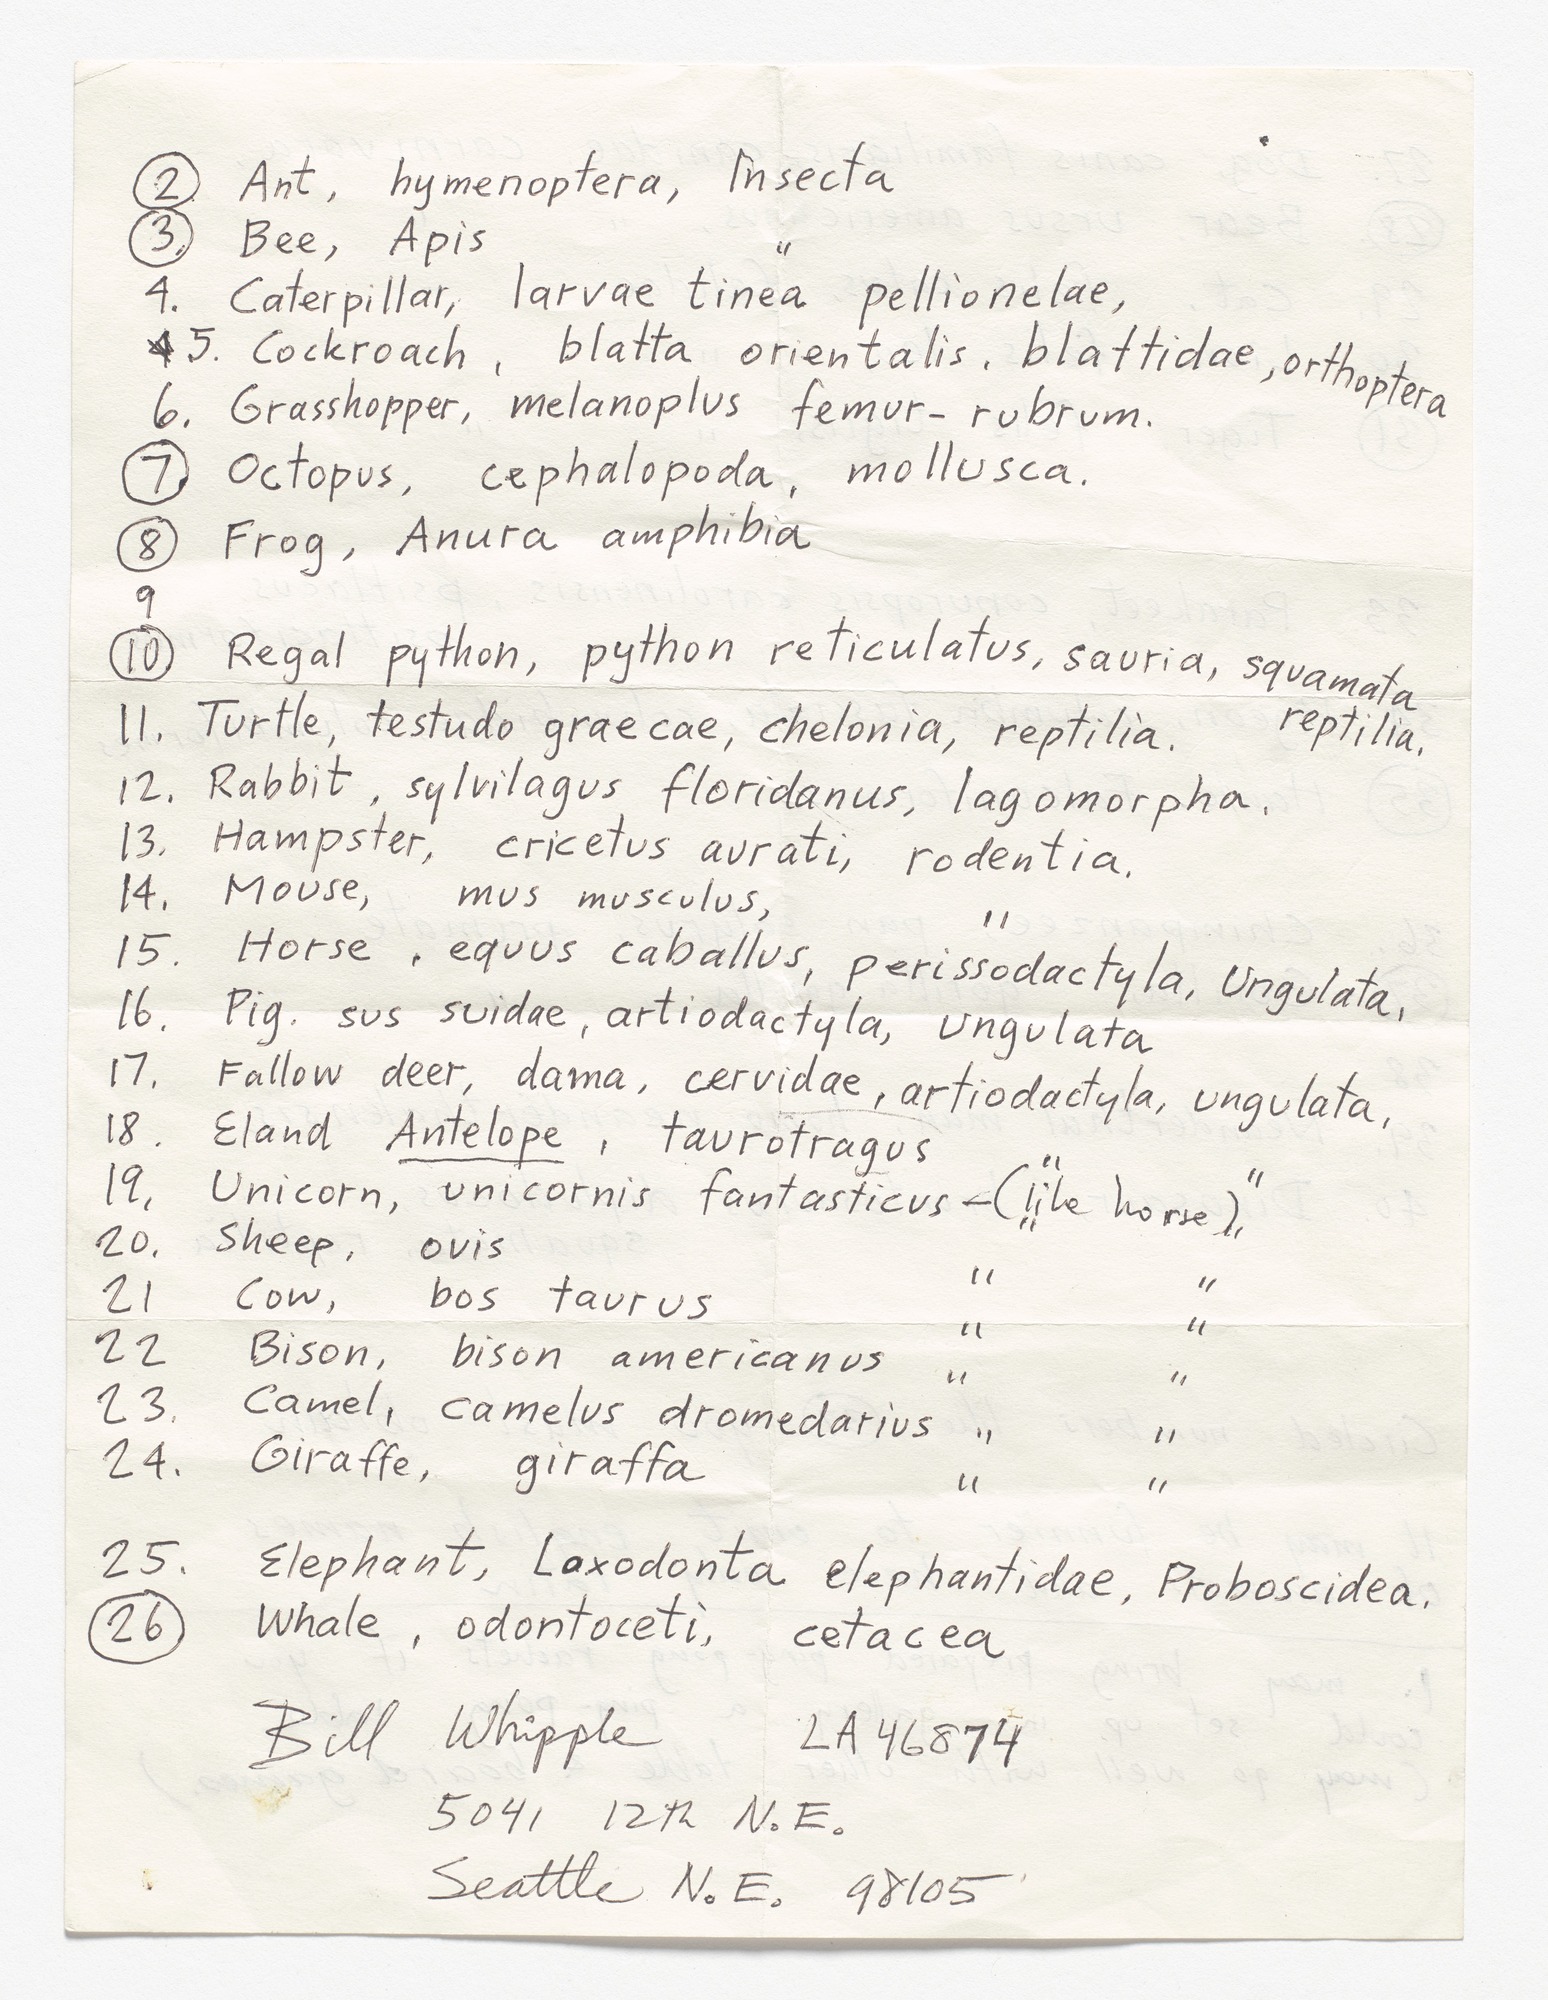 2. Ant, hymenoptera, Insecta
3. Bee, Apis "
4. Caterpillar, larvae tinea pellionelae,
5. Cockroach, blatta orientalis. blattidae, orthoptera
6. Grasshopper, melanoplus femur-rubrum.
7. Octopus, cephalopoda, mollusca.
8 Frog, Anura amphibia
9
10 Regal python, python reticulatus, sauria, squamata
reptilia.
11. Turtle, testudo graecae, chelonia, reptilia.
12. Rabbit, sylvilagus floridanus, lagomorpha.
13. Hampster, cricetus aurati, rodentia.
14. Mouse, mus musculus, "
15. Horse, equus caballus, perissodactyla, Ungulata,
16. Pig. sus suidae, artiodactyla, ungulata
17. Fallow deer, dama, cervidae, artiodactyla, ungulata,
18. Eland Antelope, taurotragus " "
19. Unicorn, unicornis fantasticus - (like horse)
20. Sheep, ovis " "
21 Cow, bos taurus " "
22 Bison, bison americanus " "
23. Camel, camelus dromedarius " "
24. Giraffe, giraffa " "
25. Elephant, Loxodonta elephantidae, Proboscidea.
26 Whale, odontoceti, cetacea
Bill Whipple LA 46874
5041 12th N.E.
Seattle N.E. 98105